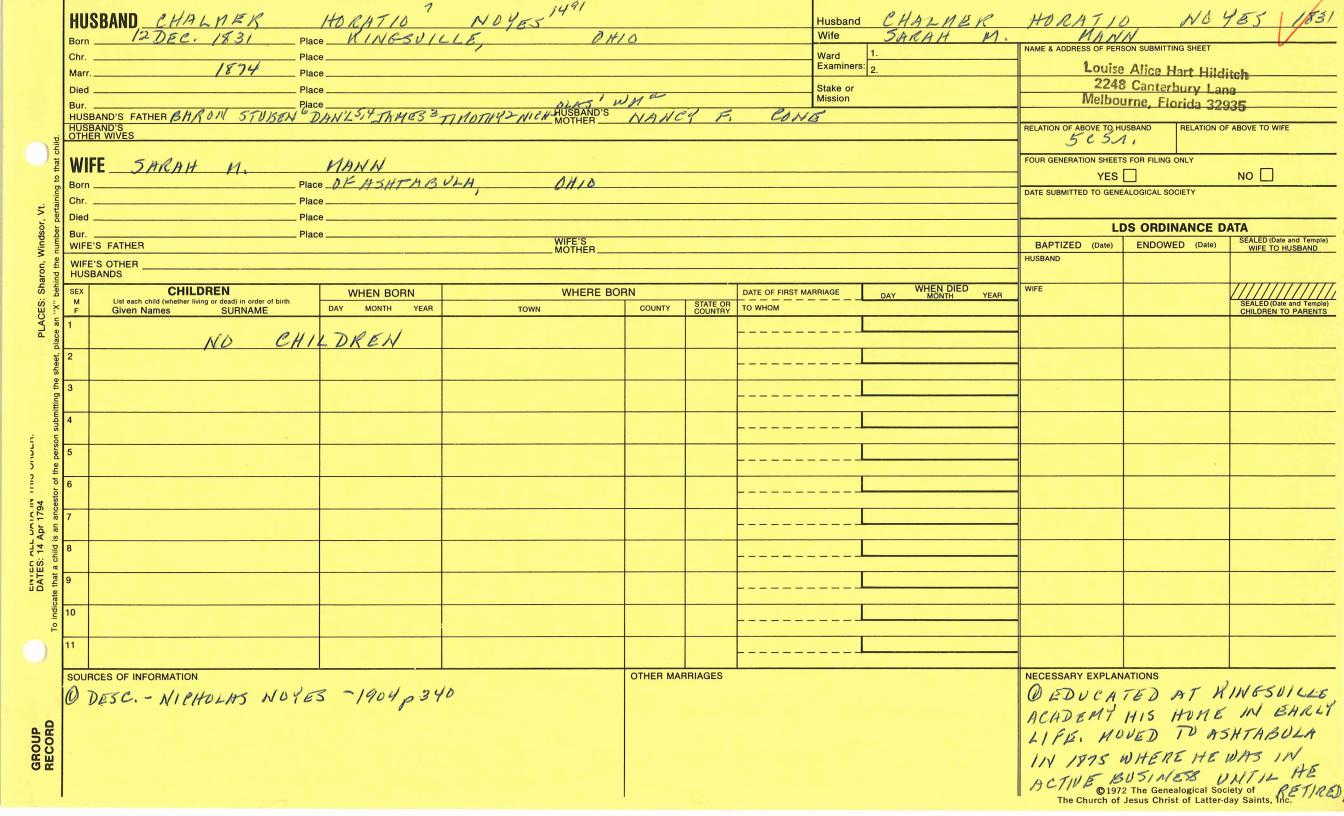 HUSBAND CHALMER HORATIO 7 NOYES 1491
Born 12 DEC. 1831 Place KINGSVILLE, OHIO
Chr. Place
Marr. 1874 Place
Died Place
Bur. Place
HUSBAND'S FATHER BARON STUBEN 6 DAN'L 5,4 JAMES 3 TIMOTHY 2 NICHOLAS 1 WM HUSBAND'S MOTHER NANCY F. CONE
HUSBAND'S OTHER WIVES
WIFE SARAH M. MANN
Born Place OF ASHTABULA, OHIO
Chr. Place
Died Place
Bur. Place
WIFE'S FATHER WIFE'S MOTHER
WIFE'S OTHER HUSBANDS
Husband CHALMER HORATIO NOYES 1831
Wife SARAH M. MANN
Ward Examiners: 1.
2.
Stake or Mission
NAME & ADDRESS OF PERSON SUBMITTING SHEET
Louise Alice Hart Hilditch
2248 Canterbury Lane
Melbourne, Florida 32935
RELATION OF ABOVE TO HUSBAND RELATION OF ABOVE TO WIFE
FOUR GENERATION SHEETS FOR FILING ONLY
YES NO
DATE SUBMITTED TO GENEALOGICAL SOCIETY
LDS ORDINANCE DATA
BAPTIZED (Date) ENDOWED (Date) SEALED (Date and Temple) WIFE TO HUSBAND
HUSBAND
WIFE
SEALED (Date and Temple) CHILDREN TO PARENTS
SEX M F
CHILDREN
List each child (whether living or dead) in order of birth
Given Names SURNAME
WHEN BORN
DAY MONTH YEAR
WHERE BORN
TOWN COUNTY STATE OR COUNTRY
DATE OF FIRST MARRIAGE
TO WHOM
WHEN DIED
DAY MONTH YEAR
1
NO CHILDREN
2
3
4
5
6
7
8
9
10
11
SOURCES OF INFORMATION
① DESC. - NICHOLAS NOYES - 1904 p 340
OTHER MARRIAGES
NECESSARY EXPLANATIONS
① EDUCATED AT KINGSVILLE
ACADEMY HIS HOME IN EARLY
LIFE. MOVED TO ASHTABULA
IN 1875 WHERE HE WAS IN
ACTIVE BUSINESS UNTIL HE
RETIRED
©1972 The Genealogical Society of
The Church of Jesus Christ of Latter-day Saints, Inc.
PLACES: Sharon, Windsor, Vt.
DATES: 14 Apr 1794
To indicate that a child is an ancestor of the person submitting the sheet, place an "X" behind the number pertaining to that child.
GROUP RECORD